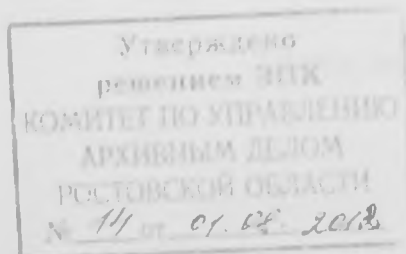 Утверждено
решением ЭПК
КОМИТЕТ ПО УПРАВЛЕНИЮ
АРХИВНЫМ ДЕЛОМ
РОСТОВСКОЙ ОБЛАСТИ
№ 14 от 01.